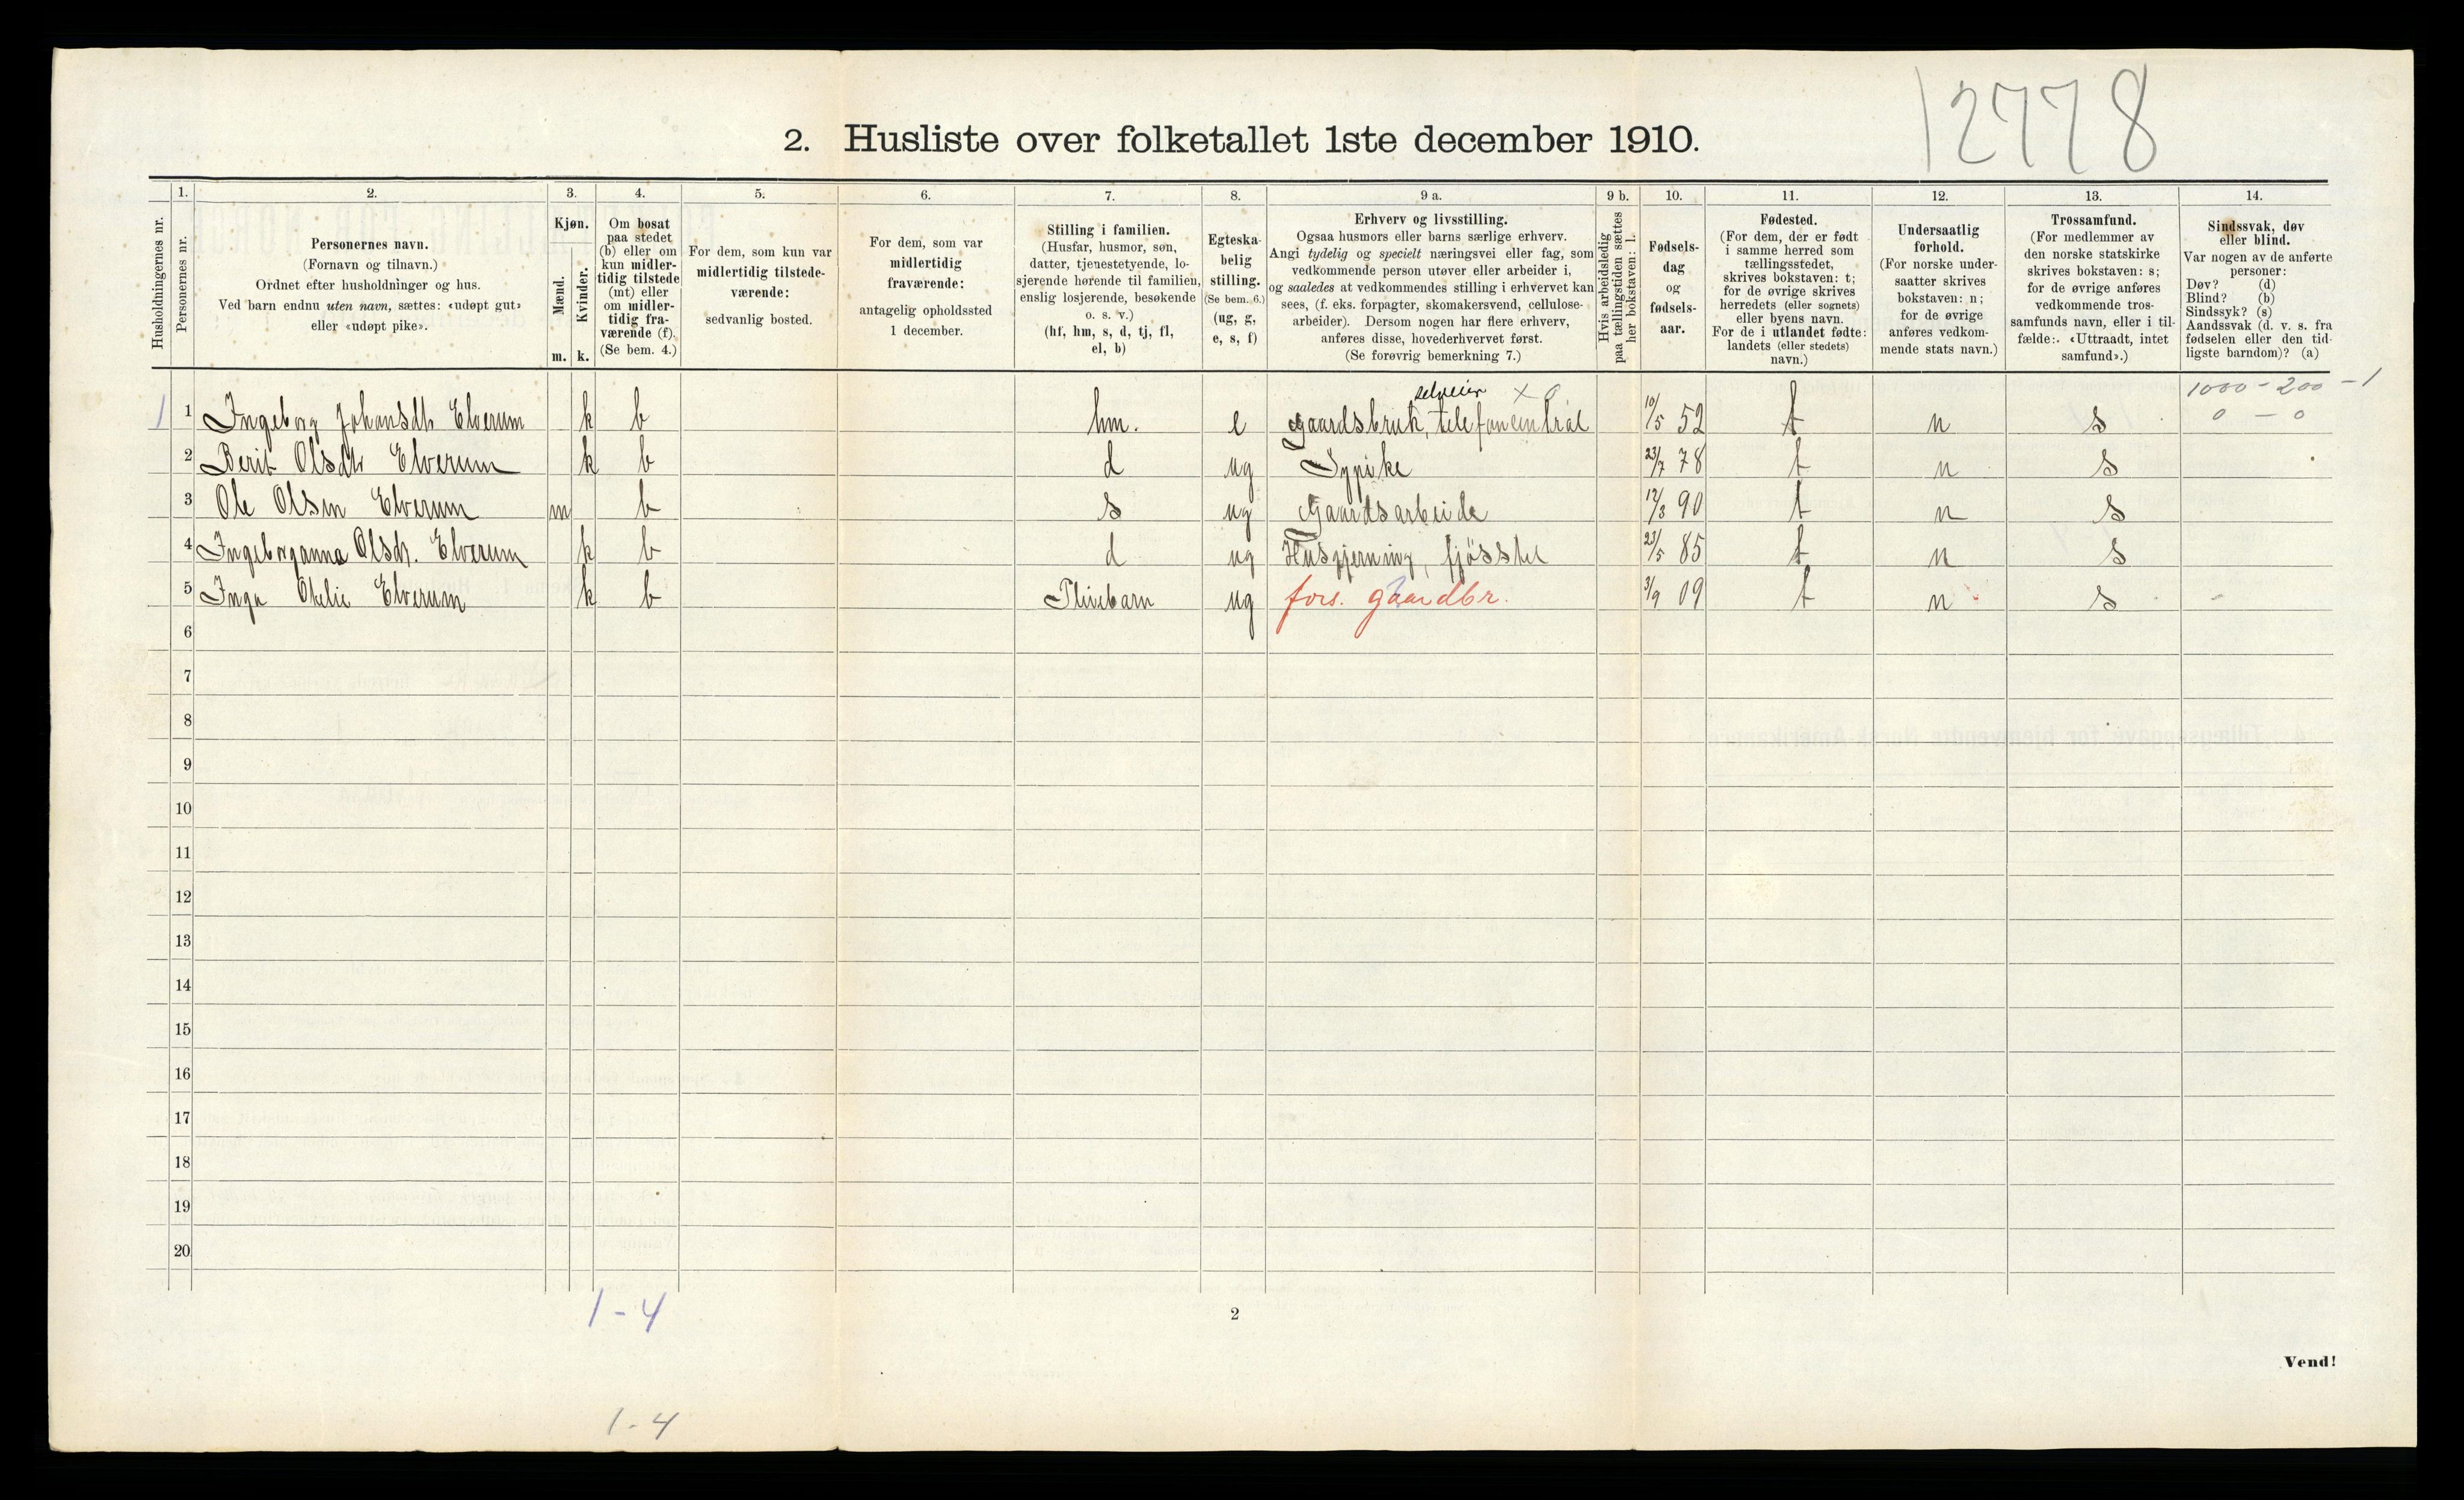 12778
2. Husliste over folketallet 1ste december 1910.
Husholdningernes nr.
1.
Personernes nr.
2.
Personernes navn.
(Fornavn og tilnavn.)
Ordnet efter husholdninger og hus.
Ved barn endnu uten navn, sættes: «udøpt gut»
eller «udøpt pike».
3.
Kjøn.
Mænd.
m.
Kvinder.
k.
4.
Om bosat
paa stedet
(b) eller om
kun midler-
tidig tilstede
(mt) eller
om midler-
tidig fra-
værende (f).
(Se bem. 4.)
5.
For dem, som kun var
midlertidig tilstede-
værende:
sedvanlig bosted.
6.
For dem, som var
midlertidig
fraværende:
antagelig opholdssted
1 december.
7.
Stilling i familien.
(Husfar, husmor, søn,
datter, tjenestetyende, lo-
sjerende hørende til familien,
enslig losjerende, besøkende
o. s. v.)
(hf, hm, s, d, tj, fl,
el, b)
8.
Egteska-
belig
stilling.
(Se bem. 6.)
(ug, g,
e, s, f)
9 a.
Erhverv og livsstilling.
Ogsaa husmors eller barns særlige erhverv.
Angi tydelig og specielt næringsvei eller fag, som
vedkommende person utøver eller arbeider i,
og saaledes at vedkommendes stilling i erhvervet kan
sees, (f. eks. forpagter, skomakersvend, cellulose-
arbeider). Dersom nogen har flere erhverv,
anføres disse, hovederhvervet først.
(Se forøvrig bemerkning 7.)
9 b.
Hvis arbeidsledig
paa tællingstiden sættes
her bokstaven: l.
10.
Fødsels-
dag
og
fødsels-
aar.
11.
Fødested.
(For dem, der er født
i samme herred som
tællingsstedet,
skrives bokstaven: t;
for de øvrige skrives
herredets (eller sognets)
eller byens navn.
For de i utlandet fødte:
landets (eller stedets)
navn.)
12.
Undersaatlig
forhold.
(For norske under-
saatter skrives
bokstaven: n;
for de øvrige
anføres vedkom-
mende stats navn.)
13.
Trossamfund.
(For medlemmer av
den norske statskirke
skrives bokstaven: s;
for de øvrige anføres
vedkommende tros-
samfunds navn, eller i til-
fælde: «Uttraadt, intet
samfund».)
14.
Sindssvak, døv
eller blind.
Var nogen av de anførte
personer:
Døv? (d)
Blind? (b)
Sindssyk? (s)
Aandssvak (d. v. s. fra
fødselen eller den tid-
ligste barndom)? (a)
selveier x 0 1000 - 200 - 1
1 1 Ingeborg Johansdtr Elverum k b hm. e gaardsbruk, telefoncentral 10/5 52 t n s 0 - 0
2 Berit Olsdtr Elverum k b d ug Sypike 23/7 78 t n s
3 Ole Olsen Elverum m b s ug Gaardsarbeide 12/3 90 t n s
4 Ingeborganna Olsdtr. Elverum k b d ug Husgjerning, fjøsstel 23/5 85 t n s
5 Inga Elverum k b Pleiebarn ug fors. gaardbr. 3/9 09 t n s
6
7
8
9
10
11
12
13
14
15
16
17
18
19
20
1-4
2
Vend!
1-4